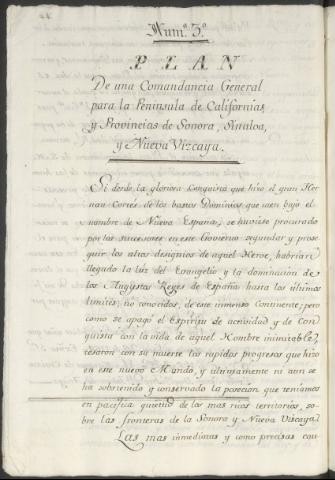 Num.º 3.º
PLAN
De una Comandancia General
para la Peninsula de Californias,
y Provincias de Sonora, Sinaloa,
y Nueva Vizcaya.
Si desde la gloriosa Conquista que hizo el gran Her
nan Cortés de los bastos Dominios que caen bajo el
nombre de Nueva España, se huviese procurado
por los succesores en este Govierno segundar y prose
guir los altos designios de aquel Heroe, habrian
llegado la luz del Evangelio y la dominacion de
los Augustos Reyes de España hasta los últimos
limites, no conocidos, de este inmenso Continente; pero
como se apagó el Espiritu de actividad y de Con
quista con la vida de aquel Hombre inimitable,
cesaron con su muerte los rapidos progresos que hizo
en este nuevo Mundo, y últimamente ni aun se
ha sobtenido y conservado la posecion que teniamos
en pacifica quietud de los mas ricos territorios, so-
bre las fronteras de la Sonora y Nueva Vizcaya.
Las mas inmediatas y como precisas cau